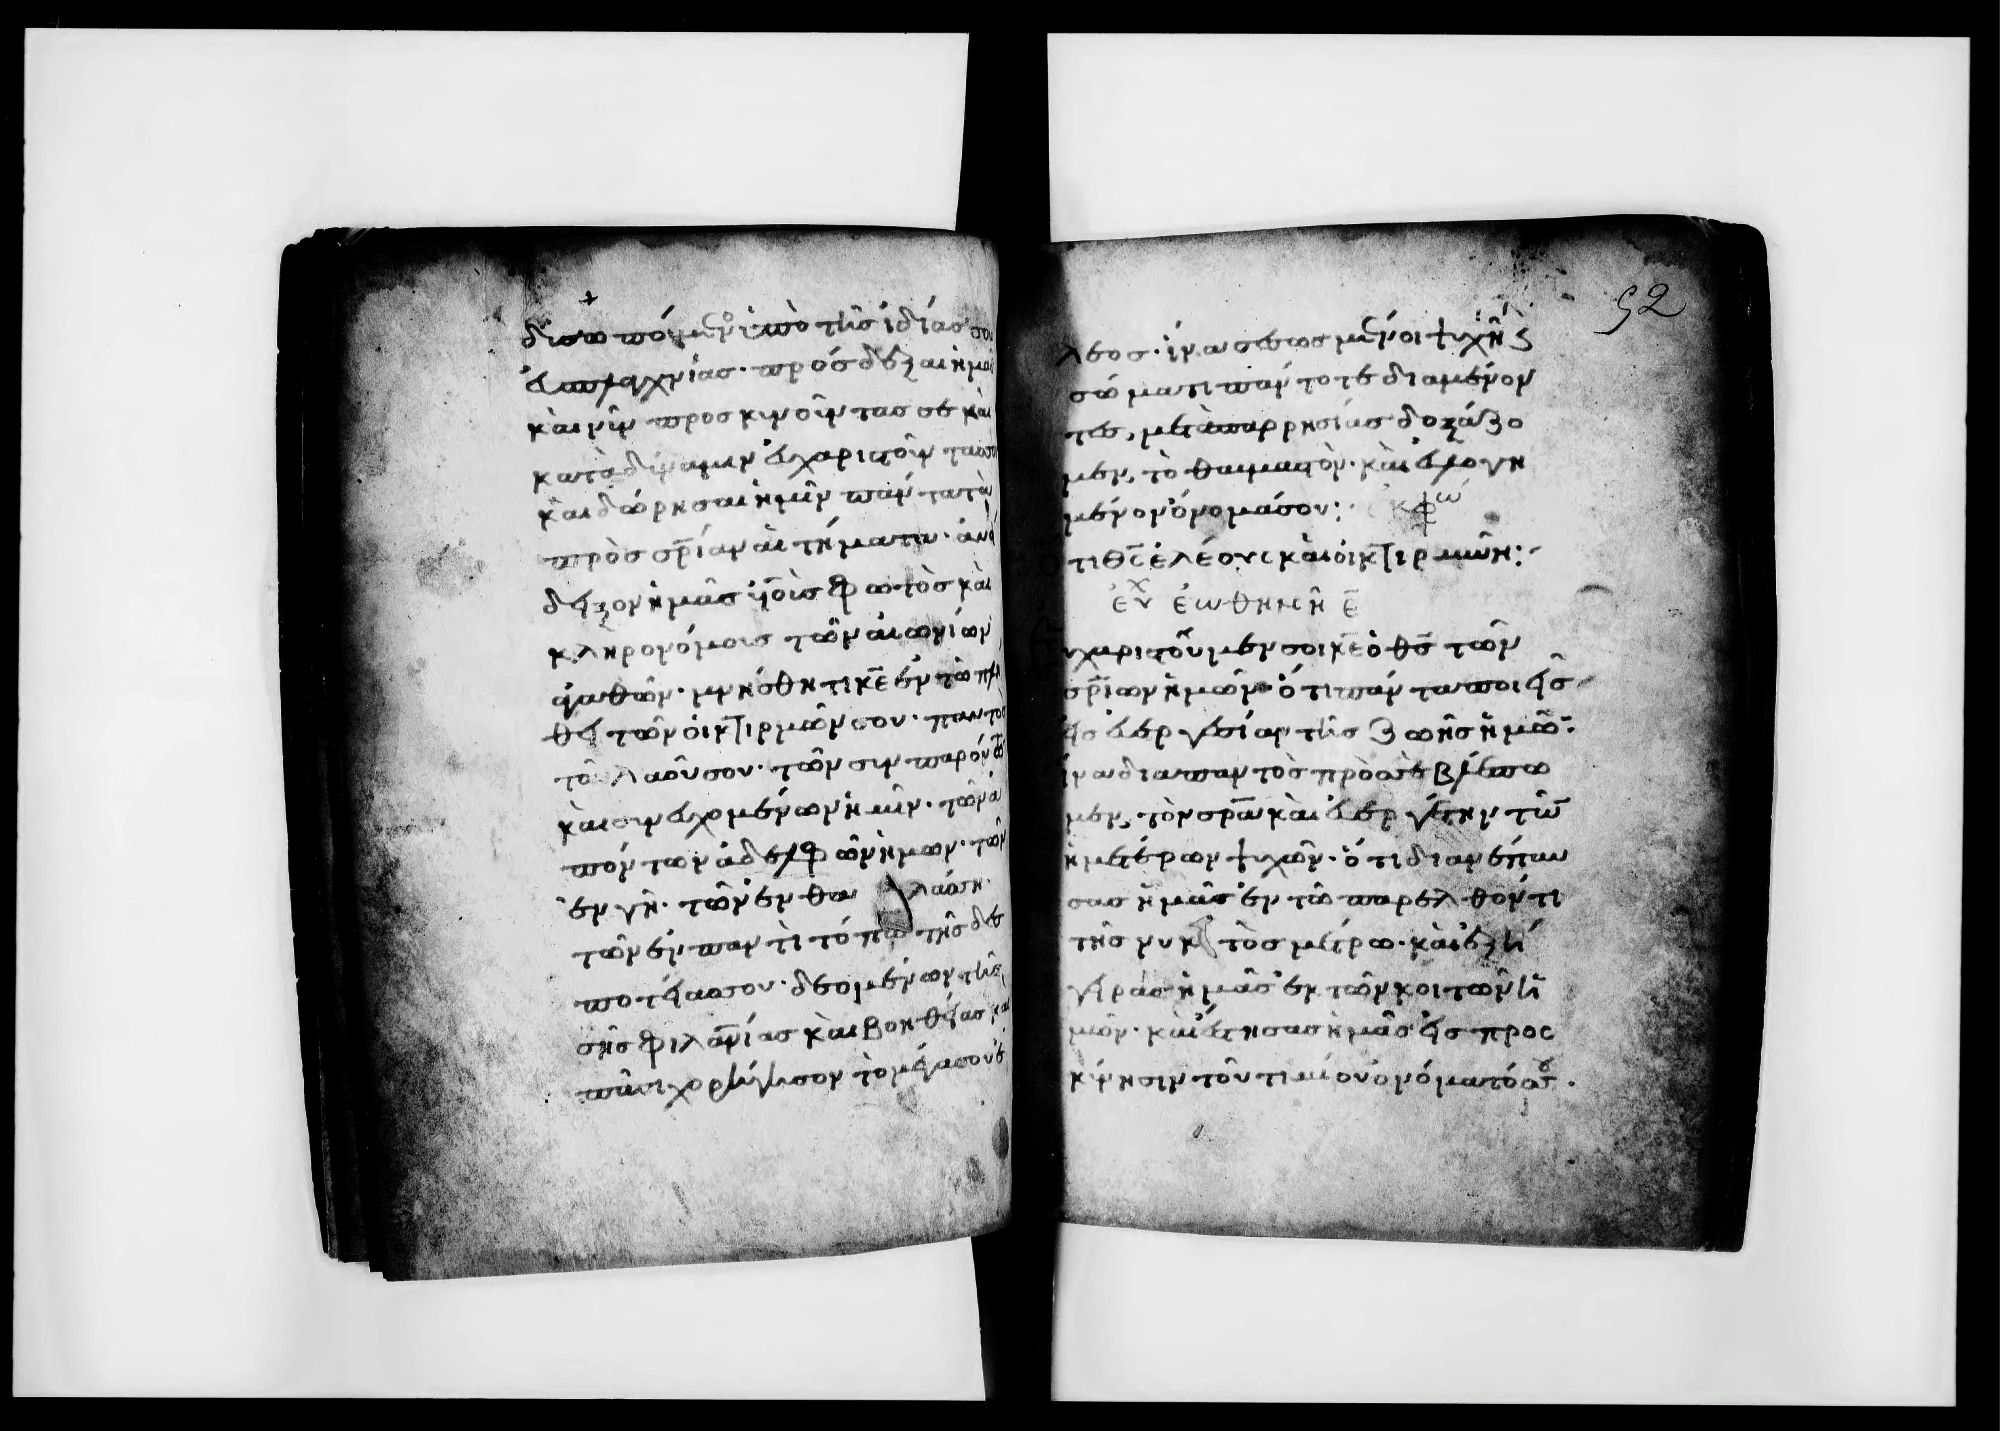 δισωπούμεν ὑπὸ τῆς ἰδίας σου
εὐσπλαχνίας· πρόσδεξαι ἡμᾶς
καὶ νῦν προσκυνοῦντας σε καὶ
κατὰ δύναμιν εὐχαριστοῦντας σοι
καὶ δώρησαι ἡμῖν πάντα τὰ
πρὸς σρίαν αἰτήματα· ἀνά
δειξον ἡμᾶς υἱοὺς φωτὸς καὶ
κληρονόμους τῶν αἰωνίων
ἀγαθῶν· μνήσθητι κε ἐν τῶ πλή
θει τῶν οἰκτιρμῶν σου· παντὸς
τοῦ λαοῦ σου· τῶν συμπαρόντων
καὶ συνευχομένων ἡμῖν· τῶν ἀ
πόντων ἀδελφῶν ἡμῶν· τῶν
ἐν γῆ· τῶν ἐν θα λάσση·
τῶν ἐν παντὶ τόπω τῆς δε
σποτείας σου· δεομένων τῆς
σῆς φιλανίας καὶ βοηθείας καὶ
πᾶσι χορήγησον τὸ μέγα σου ἔ
λεος· ἵνα σεσωσμένοι ψυχῆ ς
σώματι πάντοτε διαμένον
τες, μετὰ παρρησίας δοξάζο
μεν, τὸ θαυμαστὸν· καὶ εὐλογη
μένον ὄνομά σου: ἐκφω
ὅτι θς ἐλέους καὶ οἰκτιρμῶν:
εὐχ ἑωθηνὴ ε
εὐχαριστοῦμεν σοι κε ὁ θς τῶν
σριῶν ἡμῶν· ὅτι πάντα ποιεῖς
εἰς εὐεργεσίαν τῆς ζωῆς ἡμῶ·
ἵνα διαπαντὸς πρὸς σὲ βλέπω
μεν, τὸν σρα καὶ εὐεργέτην τῶ
ἡμετέρων ψυχῶν· ὅτι διανέπαυ
σας ἡμᾶς ἐν τῶ παρελθόντι
τῆς νυκτὸς μέρω· καὶ ἐξή
γειρας ἡμᾶς ἐκ τῶν κοιτῶν ἡ
μῶν· καὶ ἔστησας ἡμᾶς εἰς προς
κύνησιν τοῦ τιμίου ὀνόματός σου·
52